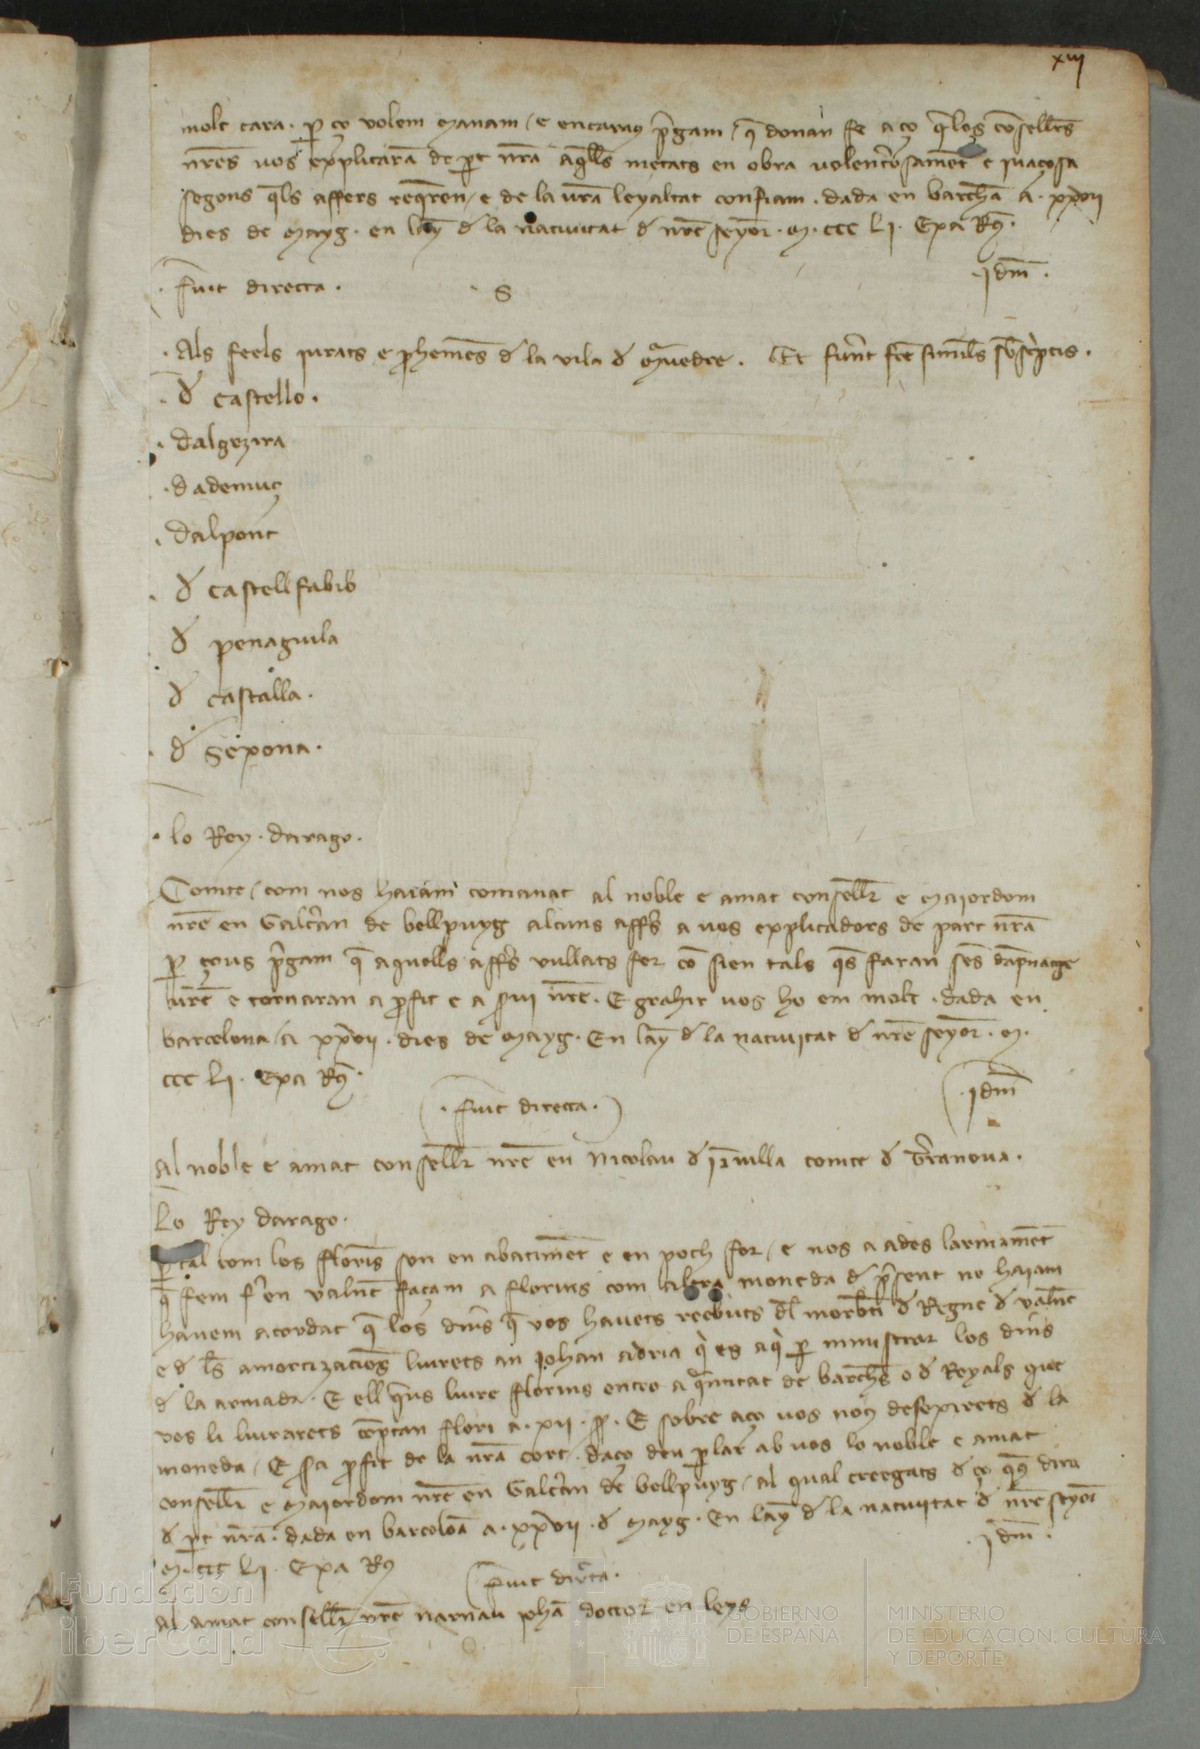 xiij
molt cara. p ço volem manam / e encaram pgam / q donan fe a ço qlos consellers
nres vos explicaran de pt nra aqlls metats en obra volenterosament e
segons qls affers reqren / e de la vra leyaltat confiam. dada en barchna a. xxvii
dies de mayg. en lay d la natiuitat d nre seyor. M. ccc Li. Exa Rs.
Idm.
fuit directa. S
Als feels jurats e prohomens d la vila d Muuedre. Et fuert fce similes sbscriptis.
d castello.
dalgezira
dademuç
dalpont
d castellfabib
d penaguila
d castalla.
d Sexona.
lo Rey. darago.
Comte / com nos haiam comanat al noble e amat conseller e maiordom
nre en Galcran de bellpuyg alcuns affers a vos explicadors de part nra
p çous pgam q aquells affers vullats fer co sien tals qs faran sens dampnatge
vre e tornaran a profit e a srui nre. E grahir vos ho em molt. dada en
barcelona / a xxvii. dies de mayg. En lay d la natiuitat d nre seyor. M.
ccc Li. Exa Rs.
Idm
fuit directa.
Al noble e amat conseller nre en Nicolau d Januilla comte d Terranoua.
Lo Rey darago.
tal com los florins son en abatiment e en poch for / e nos a ades
q fem fer en valent façam a florins com altra moneda d present no haiam
hauem acordat q los diners q vos hauets reebuts dl morbati d Regne d valent
e d les amortizacions liurets an Johan adria q es aqi p ministrar los diners
d la armada. E ell quens liure florins entro a quantitat de barchs o d Reyals que
vos li liurarets comptan flori a. xii. ss. E sobre aço vos no desexirets d la
moneda / E sa profit de la nra cort. daço deu parlar ab vos lo noble e amat
conseller e maiordom nre en Galcran de bellpuyg / al qual creegats d ço qus dira
d pt nra. dada en barcelona a. xxvii. d mayg. En lay d la natiuitat d nre seyor
Idm.
M. ccc Li. Exa Rs
fuit dircta.
Al amat conseller nre narnau johan doctor en leys
Fundación
iberCaja
GOBIERNO
DE ESPAÑA
MINISTERIO
DE EDUCACIÓN, CULTURA
Y DEPORTE